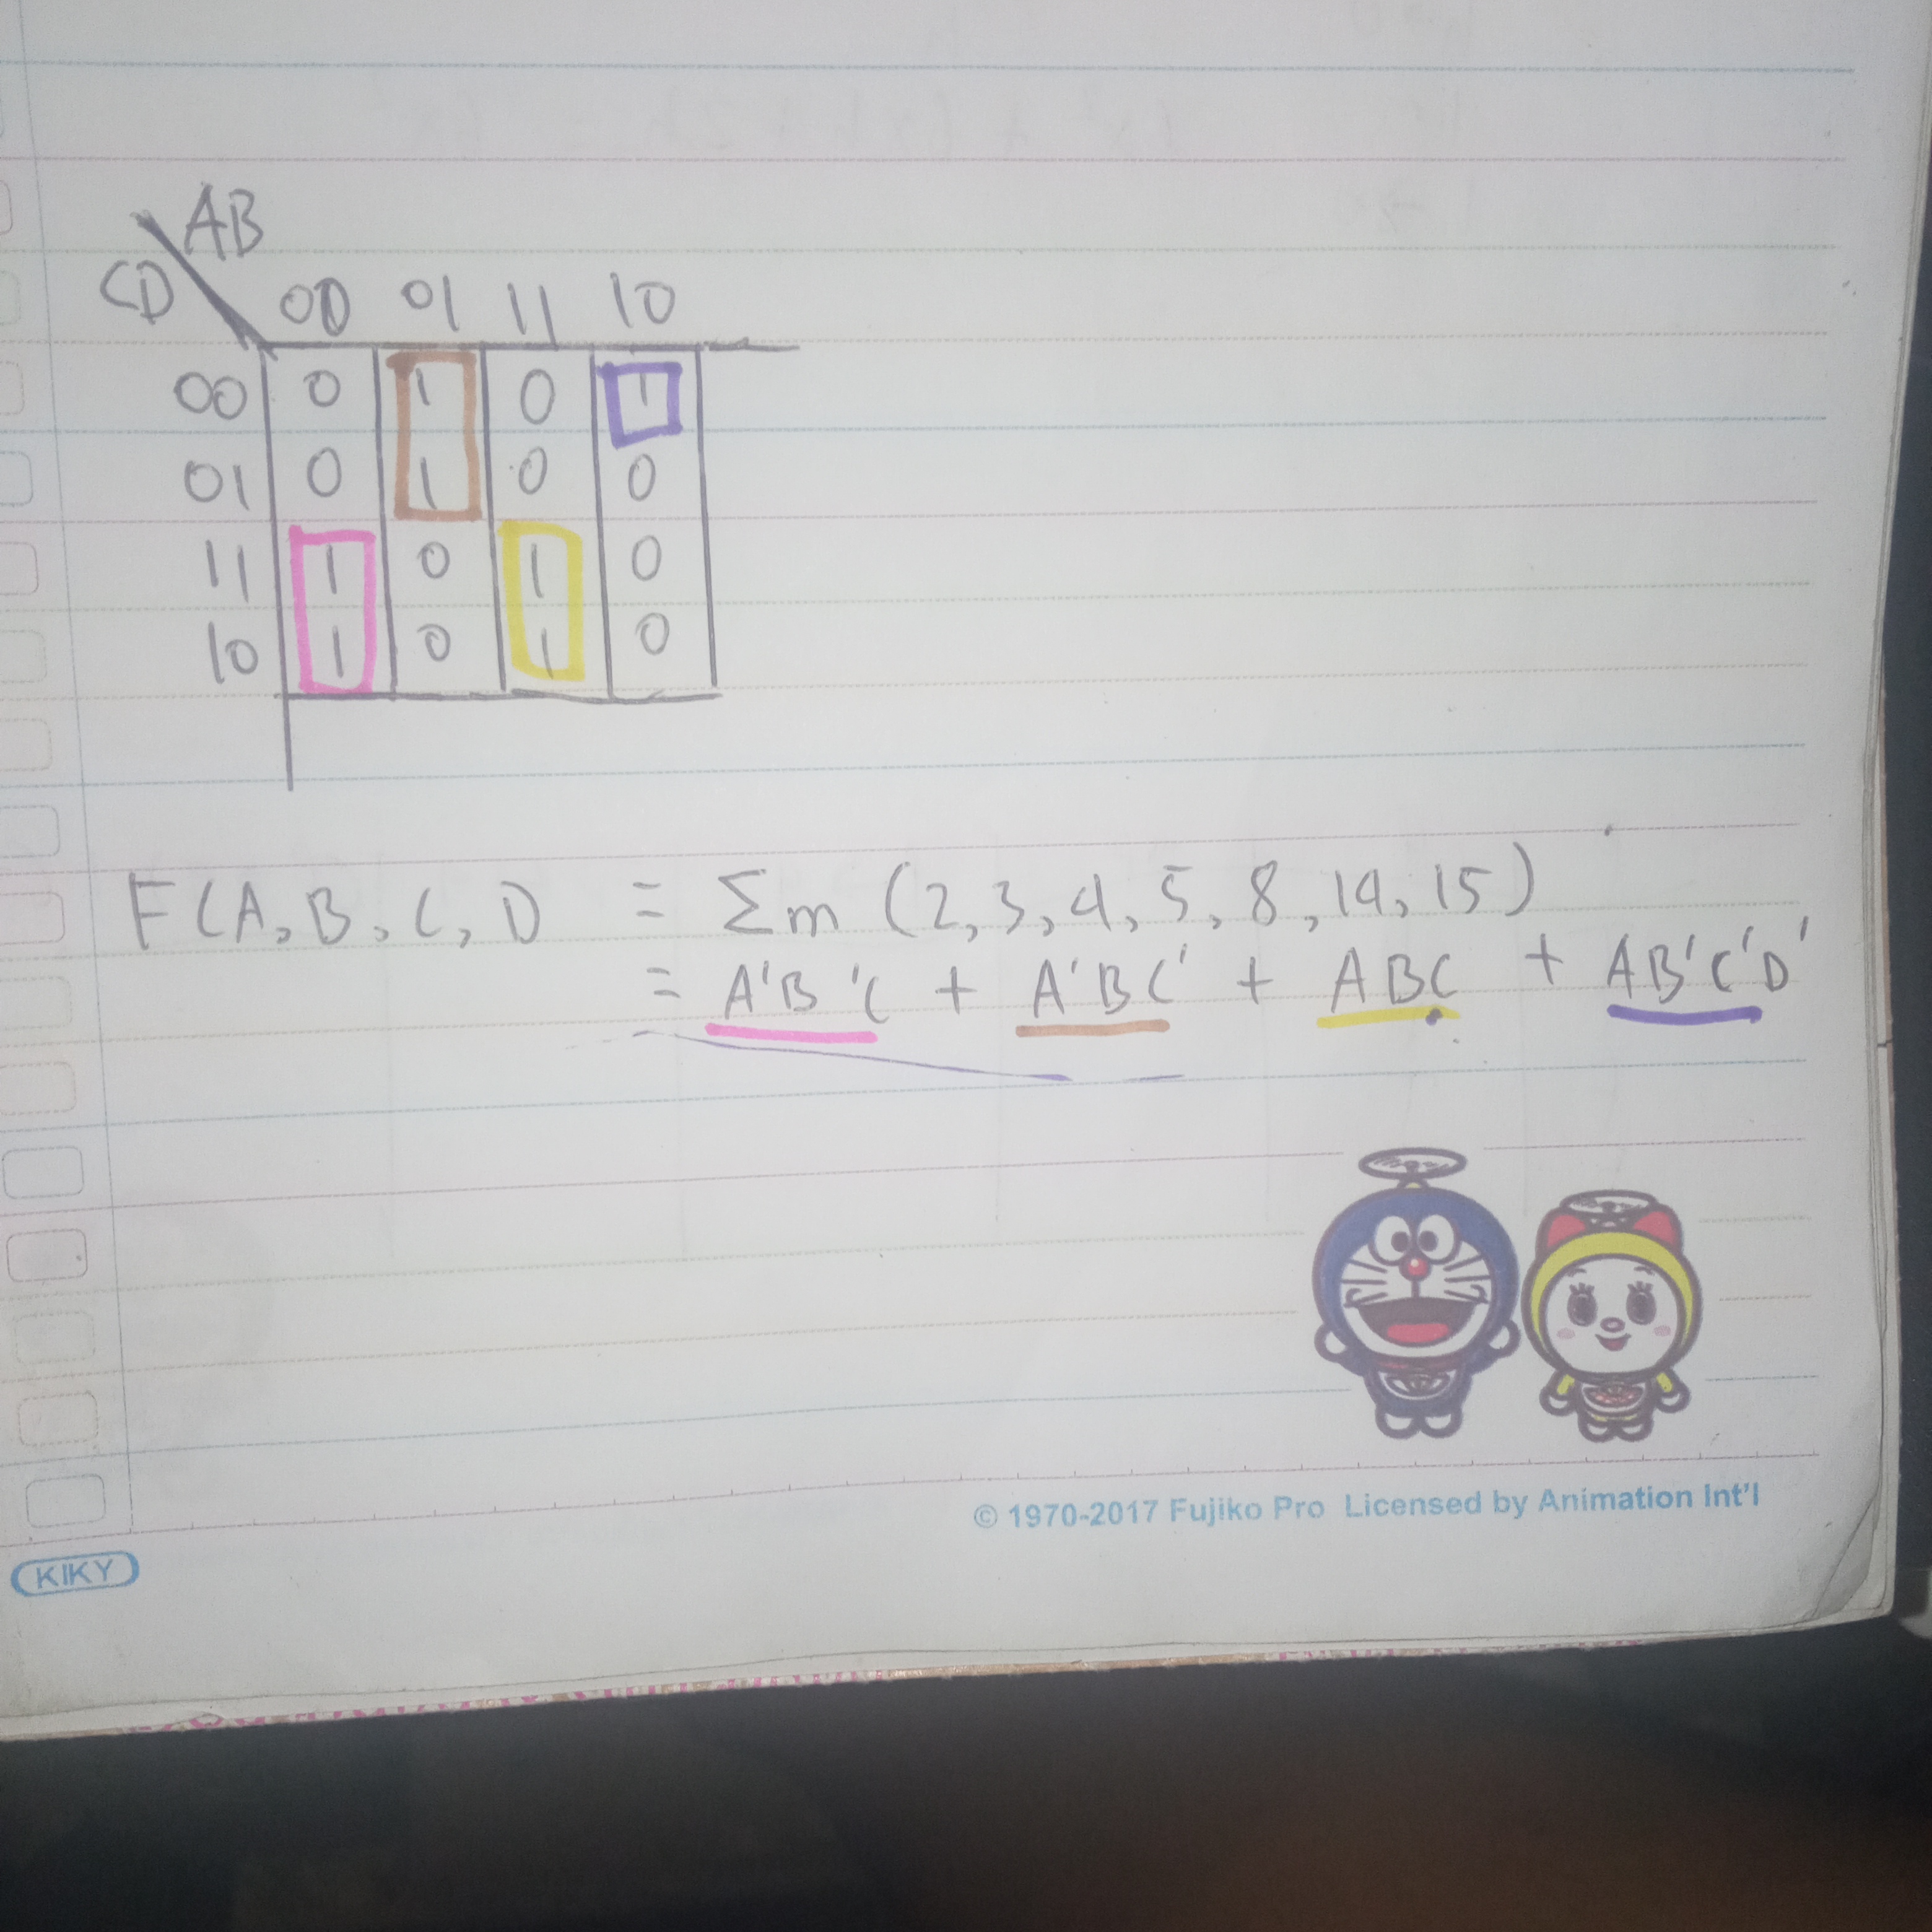 AB
CD 00 01 11 10
00 0 1 0 1
01 0 1 0 0
11 1 0 1 0
10 1 0 1 0
F(A, B, C, D = Σm (2, 3, 4, 5, 8, 14, 15)
= A'B'C + A'BC' + ABC + AB'C'D'
© 1970-2017 Fujiko Pro Licensed by Animation Int'l
KIKY